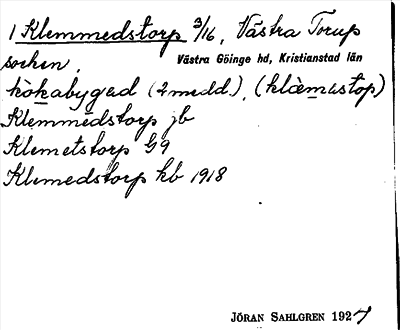 1 Klemmedstorp 3/16, Västra Torup
socken,
Västra Göinge hd, Kristianstad län
kòkabygəd (2 medd.), (klàməstop)
Klemmedstorp jb
Klemetstorp G9
Klemedstorp kb 1918
JÖRAN SAHLGREN 1927